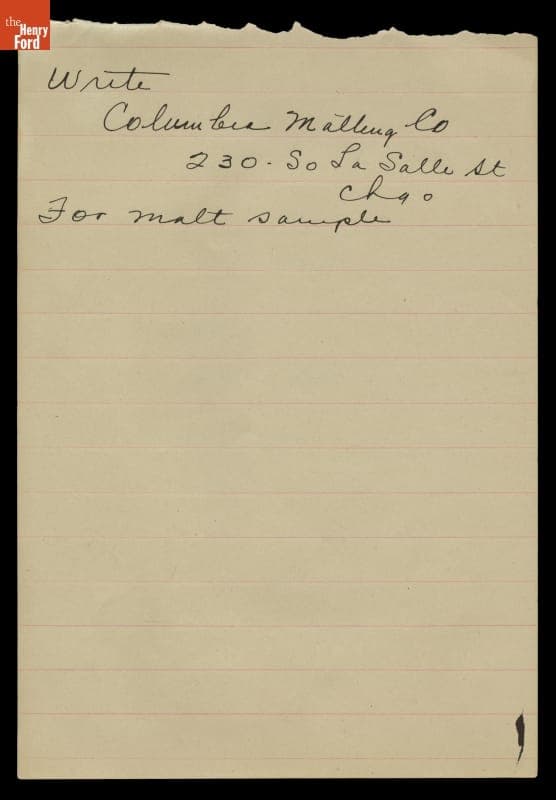 the
Henry
Ford
Write
Columbia Malting Co
230 - So La Salle St
Chgo
For malt sample